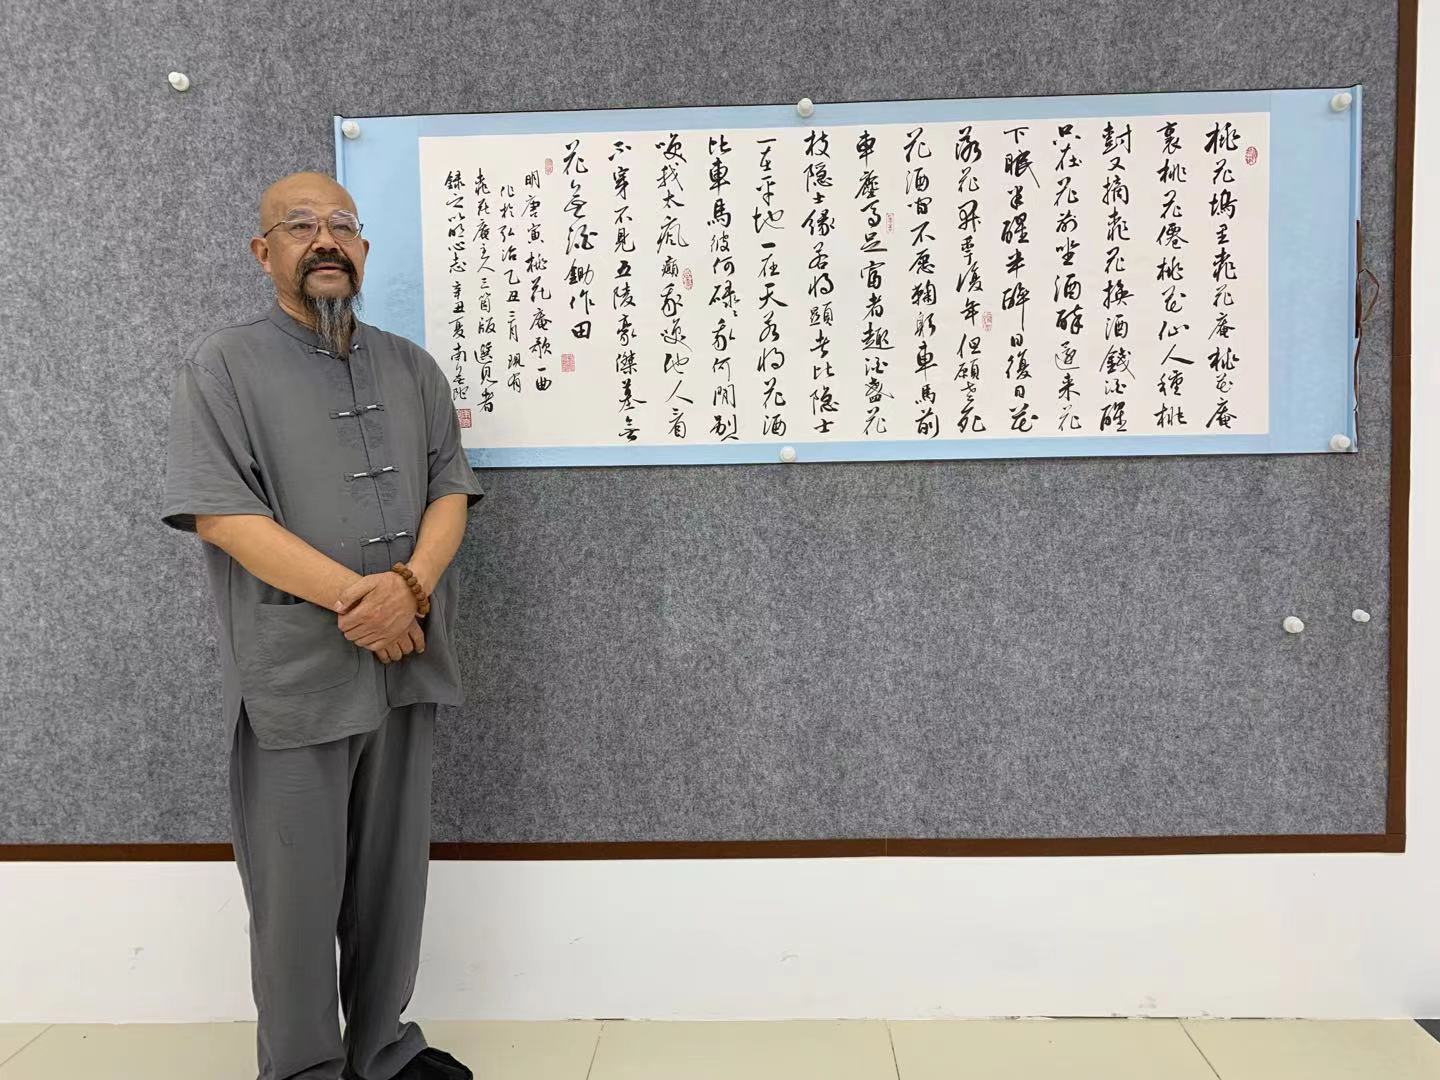 桃花塢里桃花庵桃花庵
裏桃花僊桃花仙人種桃
樹又摘桃花換酒錢酒醒
只在花前坐酒醉還来花
下眠半醒半醉日復日花
落花開年復年但願老死
花酒間不愿鞠躬車馬前
車塵馬足富者趣酒盞花
枝隐士緣若将顕者比隐士
一在平地一在天若将花酒
比車馬彼何碌々我何閒别人
笑我太瘋癲我笑他人看
不穿不見五陵豪傑墓無
花無酒鋤作田
明唐寅桃花庵歌一曲
作於弘治乙丑三月現有
桃花庵主人三箇版選見者
録之以明心志辛丑夏南